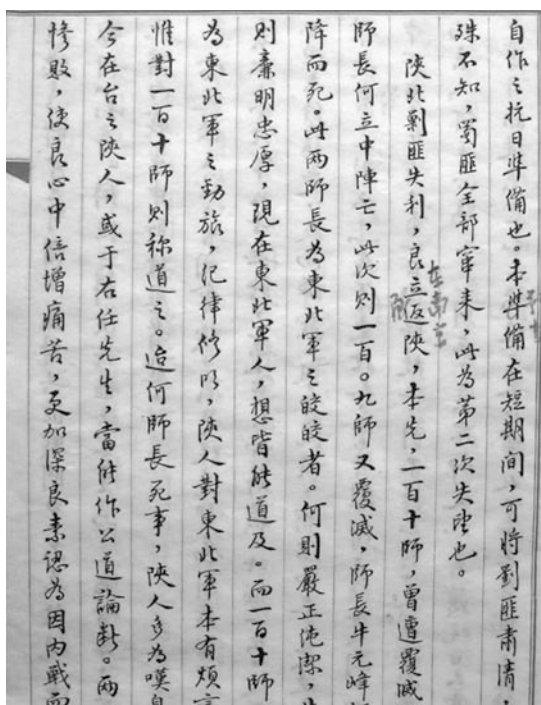 自作之抗日準備也。本準備在短期間,可將剿匪肅清,
殊不知,蜀匪全部竄來,此為第二次失望也。
陝北剿匪失利,良在南京立返陝,本先,一百十師,曾遭覆滅
師長何立中陣亡,此次則一百。九師又覆滅,師長牛元峰
降而死。此兩師長為東北軍之皎皎者。何則嚴正純潔,牛
則廉明忠厚,現在東北軍人,想皆能道及。而一百十師
為東北軍之勁旅,紀律修明,陝人對東北軍本有煩言
惟對一百十師則称道之。迨何師長死事,陝人多為嘆息
今在台之陝人,或于右任先生,當能作公道論斷。兩
慘敗,使良心中倍增痛苦,更加深良素認為因內戰而